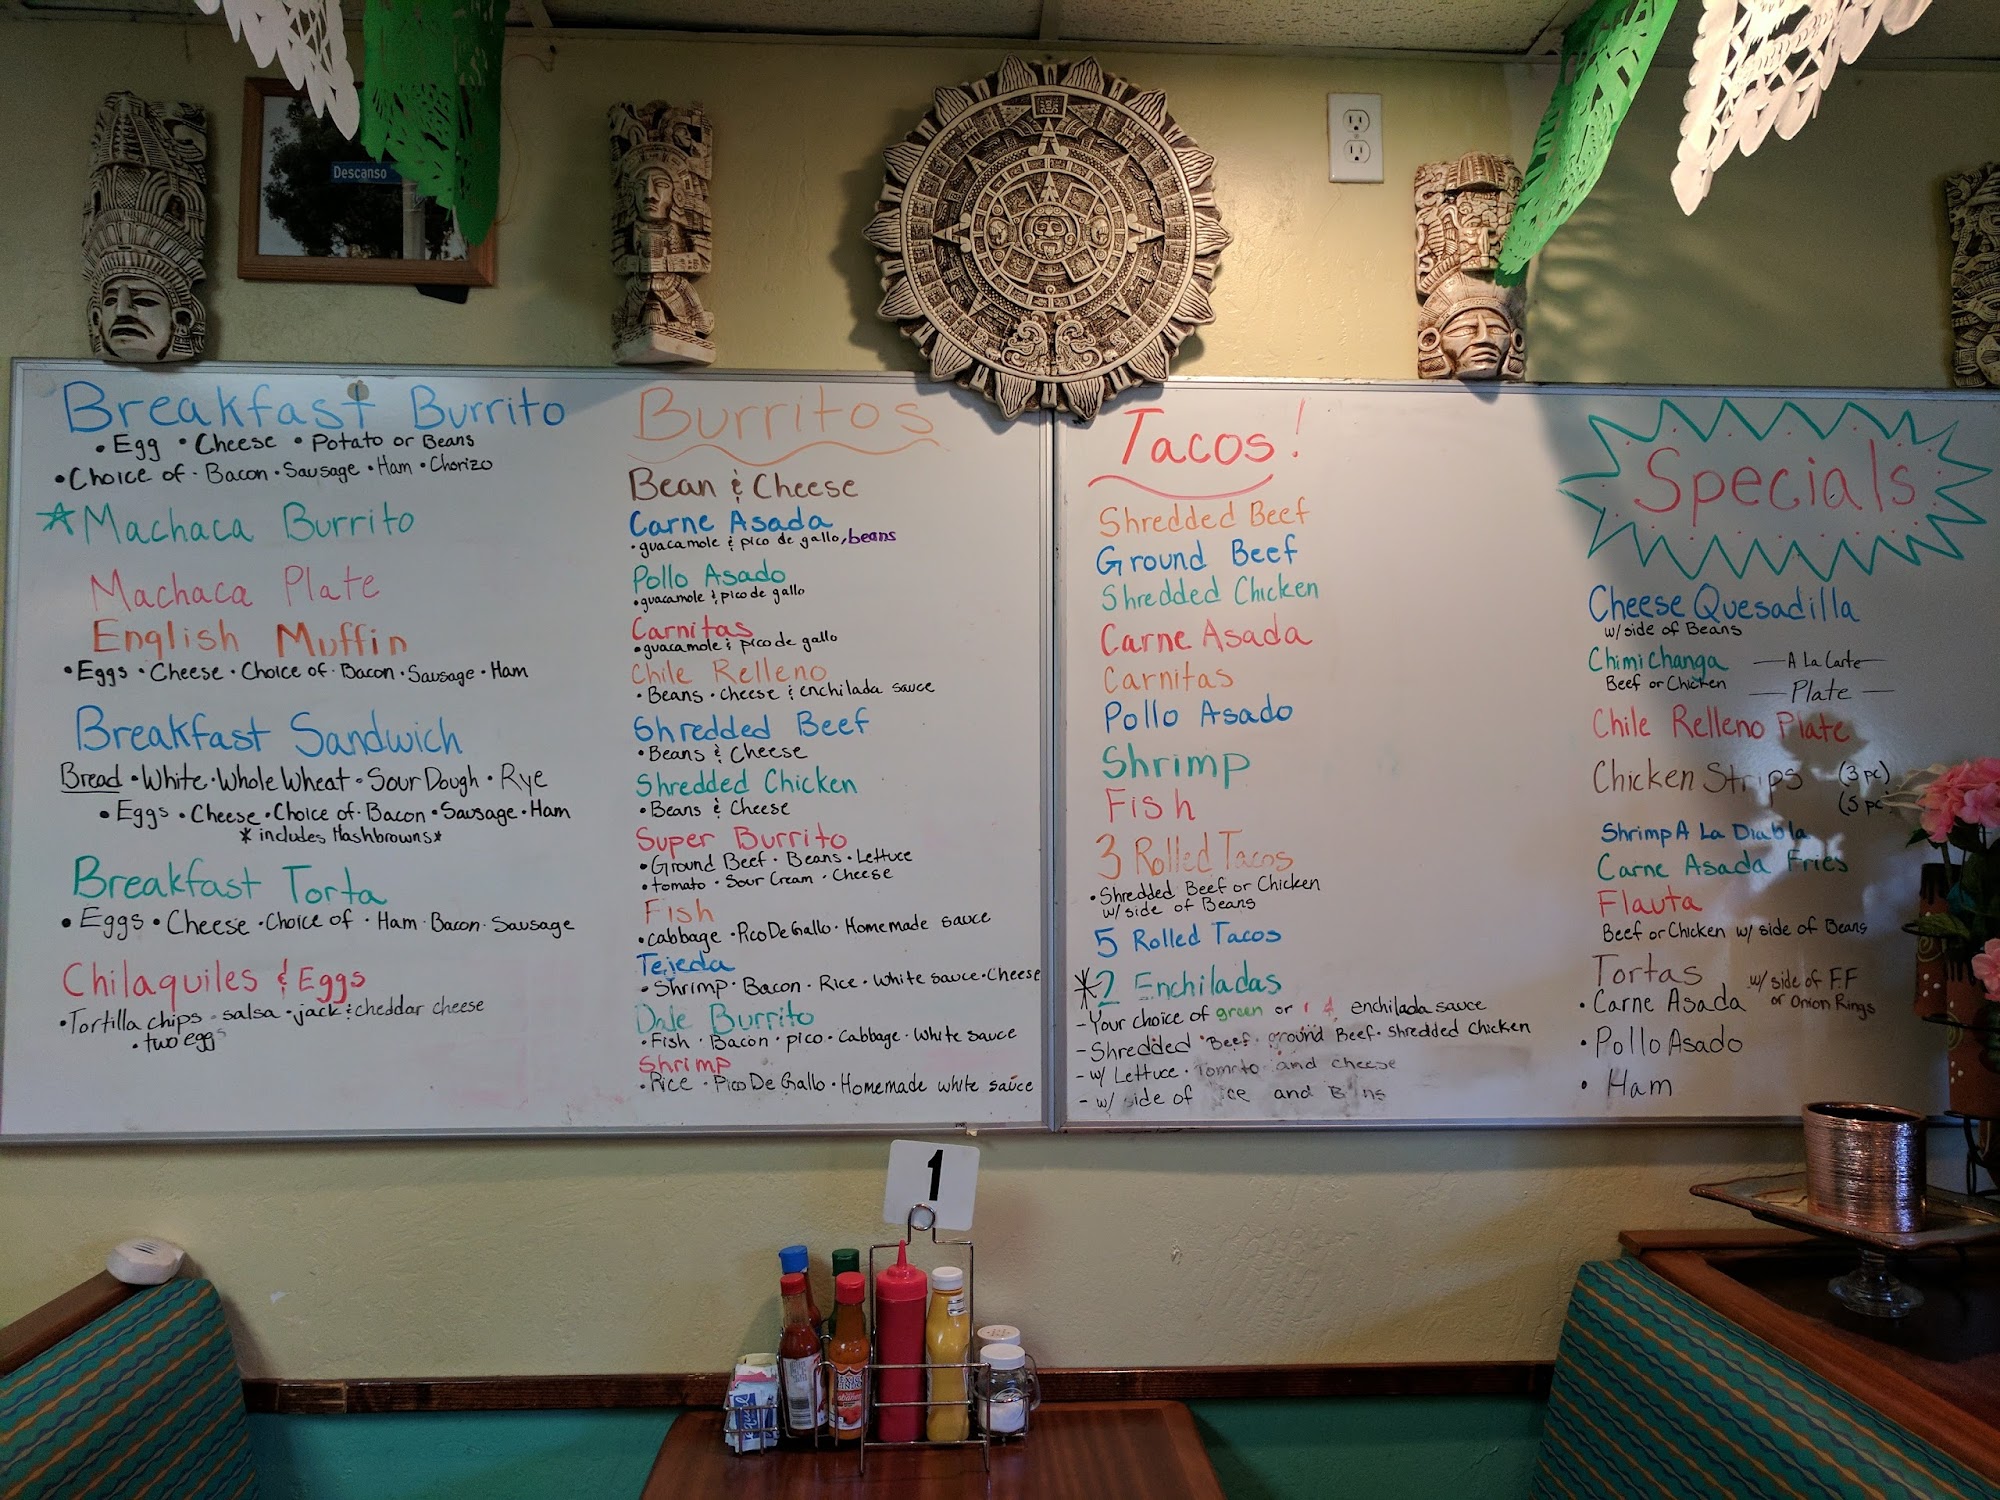 Descanso
Breakfast Burrito
• Egg • Cheese • Potato or Beans
• Choice of · Bacon · Sausage · Ham · Chorizo
Machaca Burrito
Machaca Plate
English Muffin
• Eggs · Cheese · Choice of · Bacon · Sausage · Ham
Breakfast Sandwich
Bread • White · Whole Wheat · Sour Dough · Rye
• Eggs • Cheese · Choice of · Bacon · Sausage · Ham
* includes Hashbrowns *
Breakfast Torta
• Eggs • Cheese · Choice of · Ham · Bacon · Sausage
Chilaquiles & Eggs
• Tortilla chips · salsa · jack & cheddar cheese
• two eggs
Burritos
Bean & Cheese
Carne Asada
• guacamole & pico de gallo, beans
Pollo Asado
• guacamole & pico de gallo
Carnitas
• guacamole & pico de gallo
Chile Relleno
• Beans · Cheese & enchilada sauce
Shredded Beef
• Beans & Cheese
Shredded Chicken
• Beans & Cheese
Super Burrito
• Ground Beef · Beans · Lettuce
• tomato · Sour Cream · Cheese
Fish
• cabbage · Pico De Gallo · Homemade sauce
Tejeda
• Shrimp · Bacon · Rice · White sauce · Cheese
Dale Burrito
• Fish · Bacon · pico · Cabbage · White sauce
Shrimp
• Rice · Pico De Gallo · Homemade white sauce
Tacos!
Shredded Beef
Ground Beef
Shredded Chicken
Carne Asada
Carnitas
Pollo Asado
Shrimp
Fish
3 Rolled Tacos
• Shredded Beef or Chicken
w/ side of Beans
5 Rolled Tacos
*2 Enchiladas
- Your choice of green or enchilada sauce
- Shredded Beef · ground Beef · Shredded Chicken
- w/ Lettuce · Tomato and cheese
- w/ side of and
Specials
Cheese Quesadilla
w/ side of Beans
Chimichanga — A La Carte —
Beef or Chicken — Plate —
Chile Relleno Plate
Chicken Strips (3 pc)
(5 pc)
Shrimp A La Diabla
Carne Asada Fries
Flauta
Beef or Chicken w/ side of Beans
Tortas w/ side of F.F
or Onion Rings
• Carne Asada
• Pollo Asado
• Ham
1